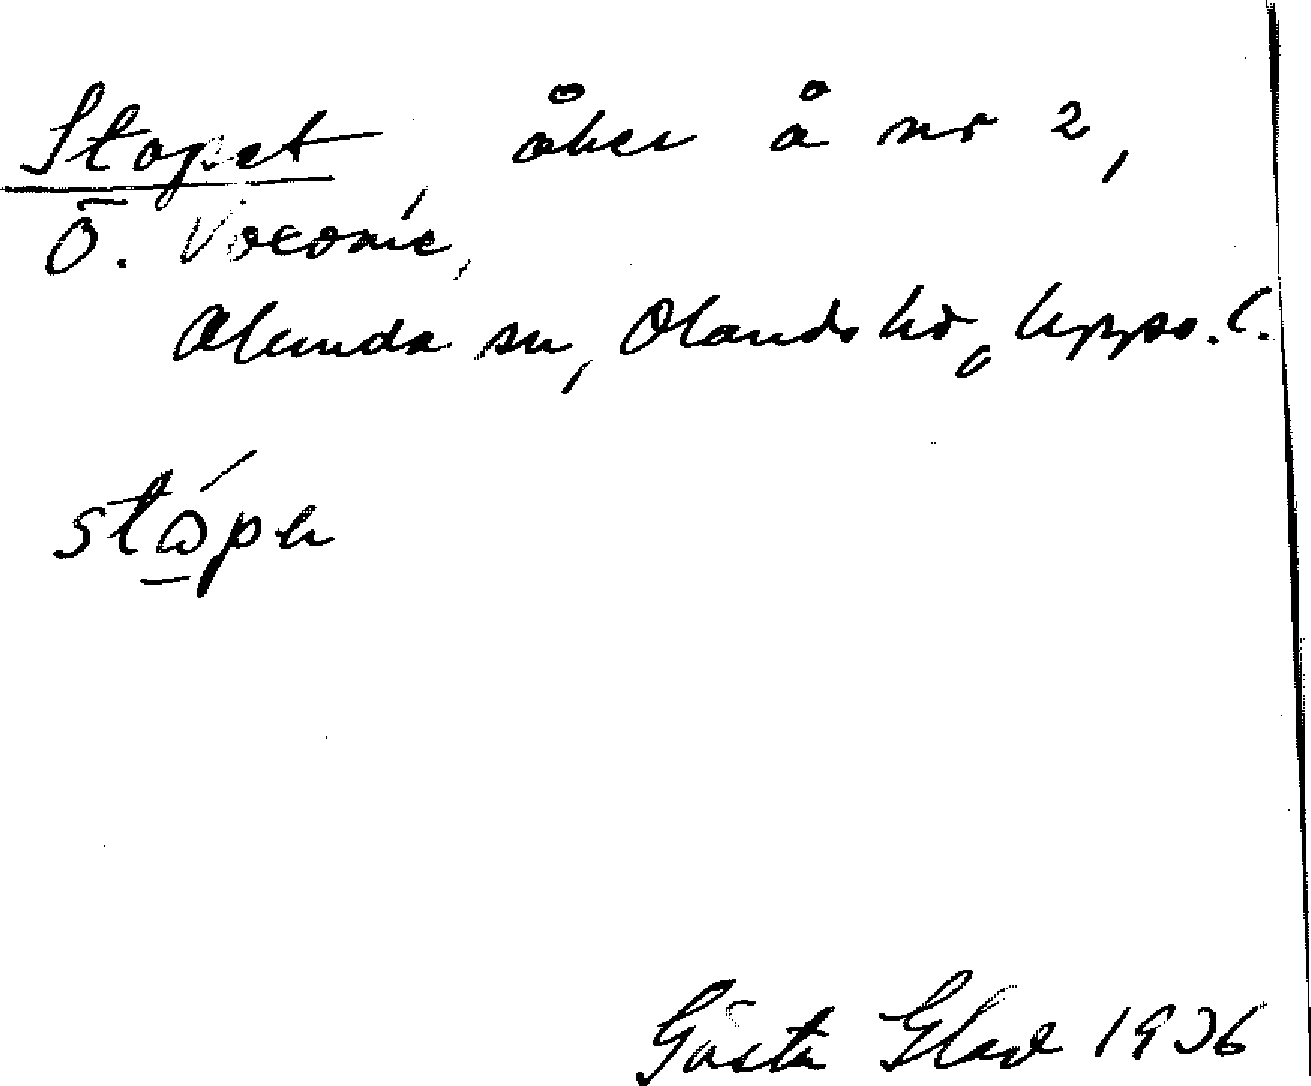 Stapet, åker å nr 2,
Ö.
Alunda sn, Olands hd, Upps. l.
ståpǝ
Gösta Glad 1936